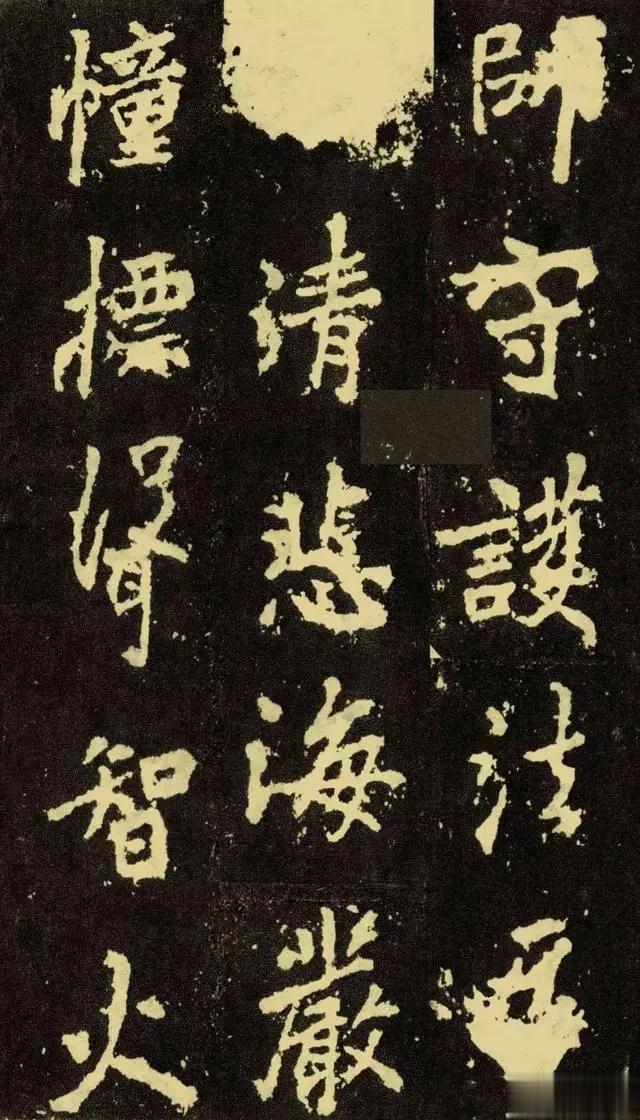 師守護法
清悲海嚴
幢摽智火